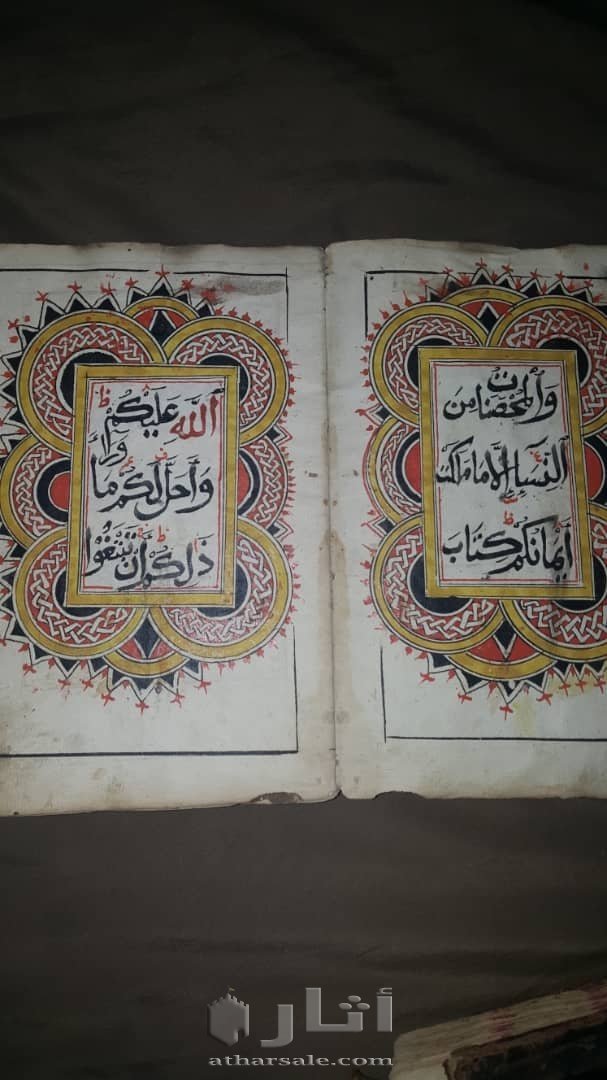 وَٱلْمُحْصَنَاتُ مِنَ
ٱلنِّسَاءِ إِلَّا مَا مَلَكَتْ
أَيْمَانُكُمْ كِتَابَ
ٱللَّهِ عَلَيْكُمْ
وَأُحِلَّ لَكُم مَّا وَرَاءَ
ذَٰلِكُمْ أَن تَبْتَغُوا
أثار
atharsale.com